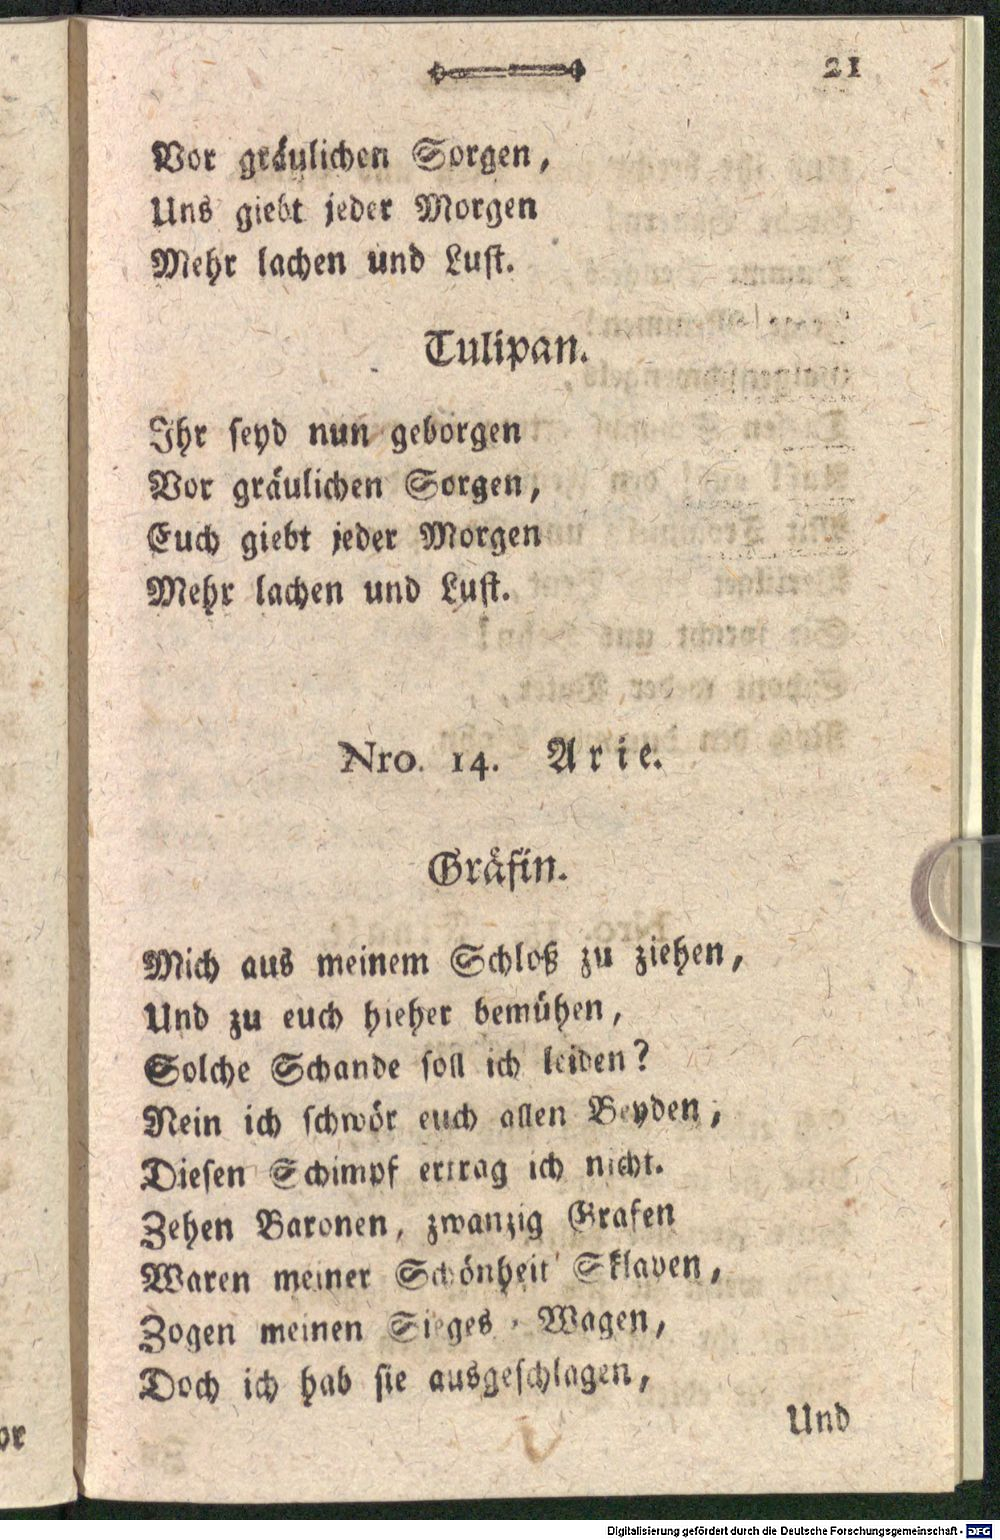 21
Vor gräulichen Sorgen,
Uns giebt jeder Morgen
Mehr lachen und Lust.
Tulipan.
Ihr seyd nun geborgen
Vor gräulichen Sorgen,
Euch giebt jeder Morgen
Mehr lachen und Lust.
Nro. 14. Arie.
Gräfin.
Mich aus meinem Schloß zu ziehen,
Und zu euch hieher bemühen,
Solche Schande soll ich leiden?
Nein ich schwör euch allen Beyden,
Diesen Schimpf ertrag ich nicht.
Zehen Baronen, zwanzig Grafen
Waren meiner Schönheit Sklaven,
Zogen meinen Sieges-Wagen,
Doch ich hab sie ausgeschlagen,
Und
or
Digitalisierung gefördert durch die Deutsche Forschungsgemeinschaft - DFG